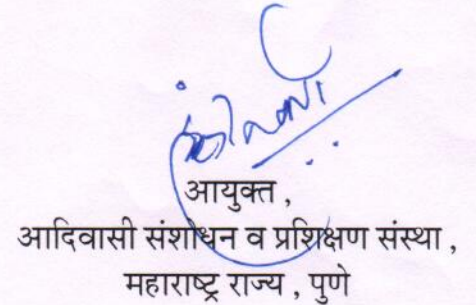 आयुक्त ,
आदिवासी संशोधन व प्रशिक्षण संस्था ,
महाराष्ट्र राज्य , पुणे